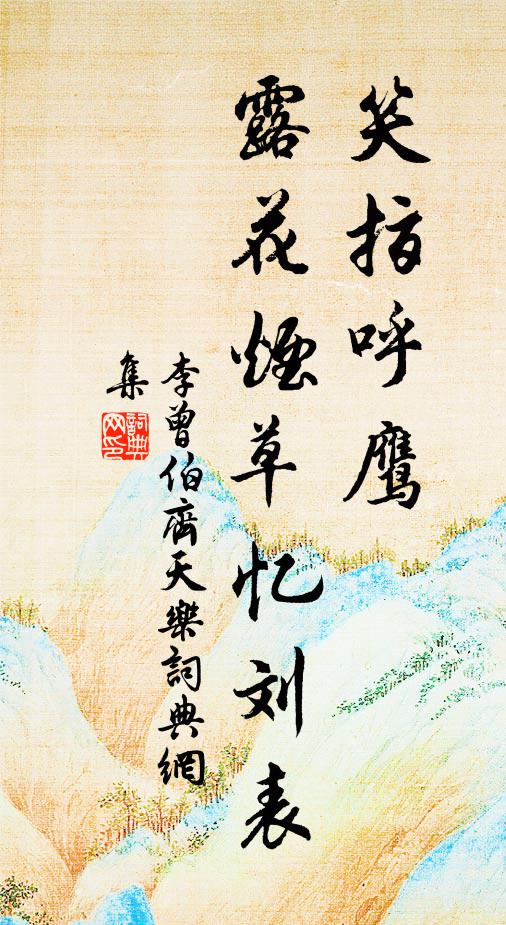 笑指呼鹰
露花烟草忆刘表
李曾伯齊天樂詞典網
集
詞典
网印